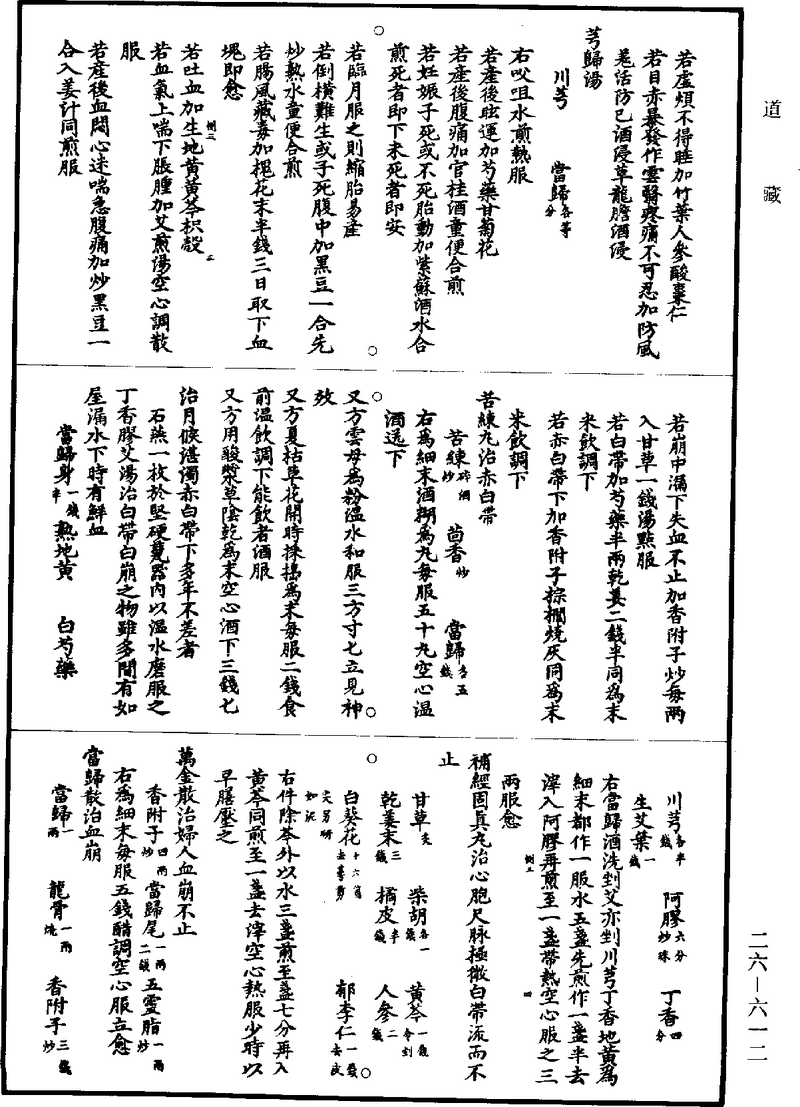 道藏
若虛煩不得睡加竹葉人參酸棗仁
若目赤暴發作雲翳疼痛不可忍加防風
羌活防已酒浸草龍膽酒浸
芎歸湯
川芎 當歸各等分
右㕮咀水煎熱服
若產後眩運加芍藥甘菊花
若產後腹痛加官桂酒童便合煎
若妊娠子死或不死胎動加紫蘇酒水合
煎死者即下未死者即安
若臨月服之則縮胎易產
若倒橫難生或子死腹中加黑豆一合先
炒熱水童便合煎
若腸風藏毒加槐花末半錢三日取下血
塊即愈
若吐血加生地黃黃芩枳殼
若血氣上喘下脹腫加艾煎湯空心調散
服
若產後血悶心迷喘急腹痛加炒黑豆一
合入姜汁同煎服
若崩中漏下失血不止加香附子炒每兩
入甘草一錢湯點服
若白帶加芍藥半兩乾姜二錢半同為末
米飲調下
若赤白帶下加香附子棕櫚燒灰同為末
米飲調下
苦練丸治赤白帶
苦練碎酒炒 茴香炒 當歸各五錢
右為細末酒糊為丸每服五十丸空心溫
酒送下
又方雲母為粉溫水和服三方寸匕立見神
效
又方夏枯草花開時採搗為末每服二錢食
前溫飲調下能飲者酒服
又方用酸漿草陰乾為末空心酒下三錢匕
治月候湛濁赤白帶下多年不差者
石燕一枚於堅硬甆器內以溫水磨服之
丁香膠艾湯治白帶白崩之物雖多間有如
屋漏水下時有鮮血
當歸身一錢半 熟地黃 白芍藥
川芎各半錢 阿膠六分炒珠 丁香四分
生艾葉一錢
右當歸酒洗剉艾亦剉川芎丁香地黃為
細末都作一服水五盞先煎作一盞半去
滓入阿膠再煎至一盞帶熱空心服之三
兩服愈
補經固真丸治心胞尺脉極微白帶流而不
止
甘草炙 柴胡各一錢 黃芩一錢令剉
乾姜末三錢 橘皮半錢 人參二錢
白葵花十六箇去萼剪 郁李仁一錢去皮
尖另研如泥
右件除芩外以水三盞煎至盞七分再入
黃芩同煎至一盞去滓空心熱服少時以
早膳壓之
萬金散治婦人血崩不止
香附子四兩炒 當歸尾一兩二錢 五靈脂一兩炒
右為細末每服五錢醋調空心服立愈
當歸散治血崩
當歸一兩 龍骨一兩燒 香附子三錢炒
二六—六一二